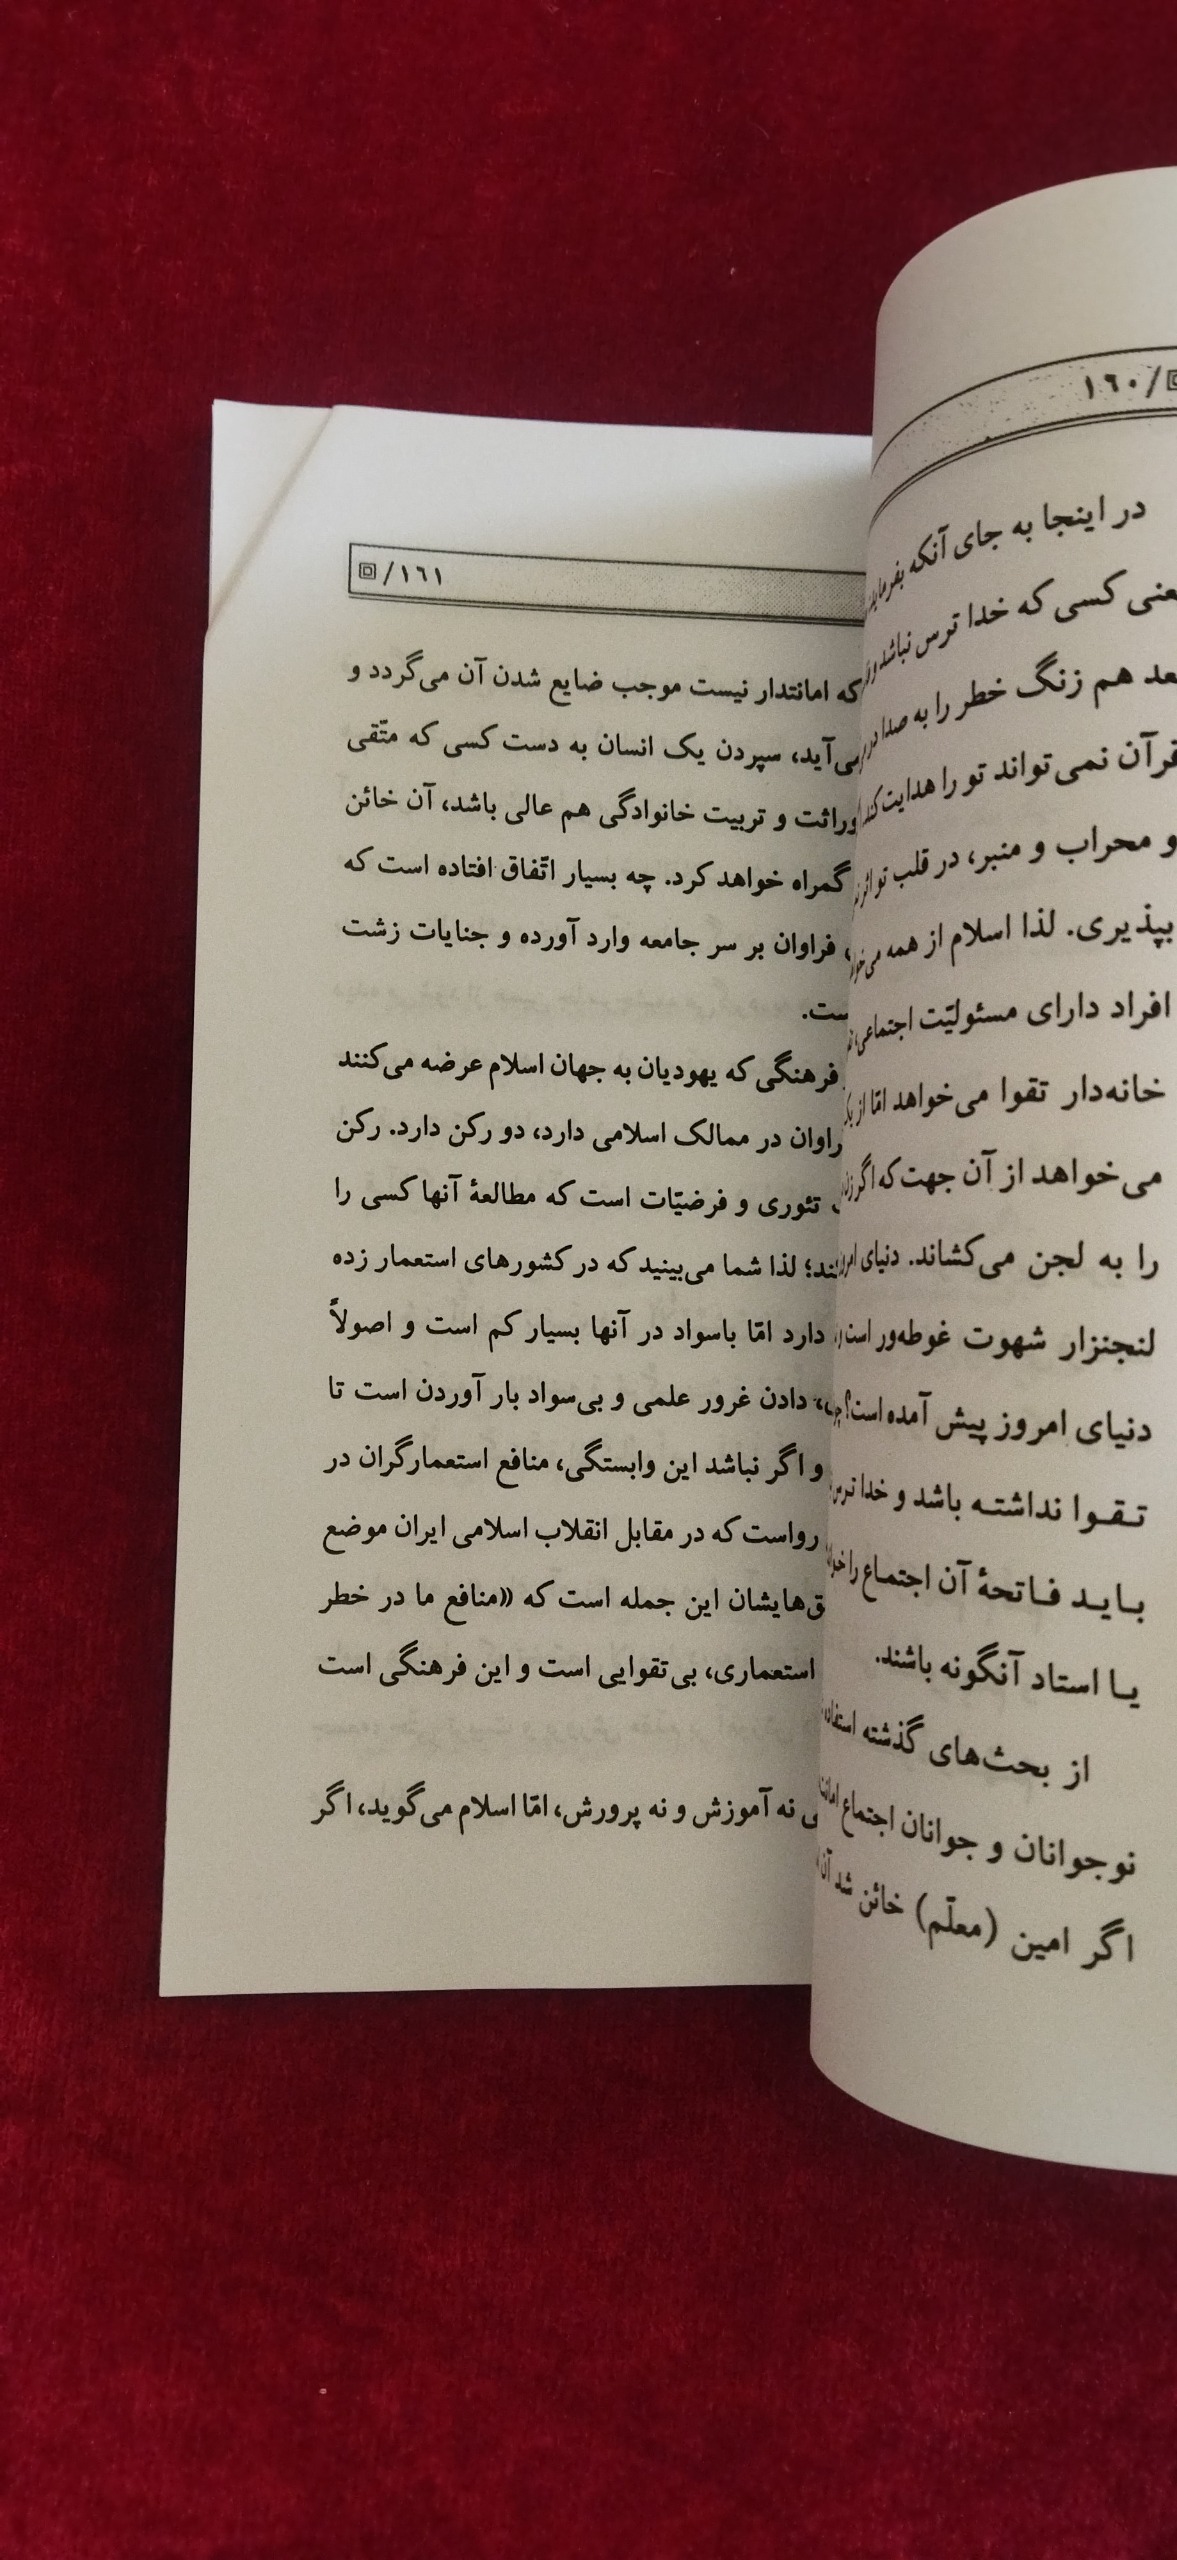 ١٦٠/
در اینجا به جای آنکه بفرماید
کسی که خدا ترس نباشد و
هم زنگ خطر را به صدا در
قرآن نمی‌تواند تو را هدایت کند
و محراب و منبر، در قلب تو اثر
بپذیری. لذا اسلام از همه
افراد دارای مسئولیّت اجتماعی،
خانه‌دار تقوا می‌خواهد امّا از یک
می‌خواهد از آن جهت که اگر
را به لجن می‌کشاند. دنیای
لنجنزار شهوت غوطه‌ور است
دنیای امروز پیش آمده است؟
تـقـوا نداشتـه باشد و خدا ترس
بـایـد فـاتحهٔ آن اجتمـاع را
یـا استاد آنگونه باشند.
از بحث‌های گذشته استفاده
نوجوانان و جوانان اجتماع
اگر امین (معلّم) خائن شد آن
١٦١/
که امانتدار نیست موجب ضایع شدن آن می‌گردد و
می‌آید، سپردن یک انسان به دست کسی که متّقی
وراثت و تربیت خانوادگی هم عالی باشد، آن خائن
گمراه خواهد کرد. چه بسیار اتّفاق افتاده است که
فراوان بر سر جامعه وارد آورده و جنایات زشت
ست.
فرهنگی که یهودیان به جهان اسلام عرضه می‌کنند
راوان در ممالک اسلامی دارد، دو رکن دارد. رکن
تئوری و فرضیّات است که مطالعهٔ آنها کسی را
ند؛ لذا شما می‌بینید که در کشورهای استعمار زده
دارد امّا باسواد در آنها بسیار کم است و اصولاً
دادن غرور علمی و بی‌سواد بار آوردن است تا
و اگر نباشد این وابستگی، منافع استعمارگران در
رواست که در مقابل انقلاب اسلامی ایران موضع
ق‌هایشان این جمله است که «منافع ما در خطر
استعماری، بی‌تقوایی است و این فرهنگی است
نه آموزش و نه پرورش، امّا اسلام می‌گوید، اگر